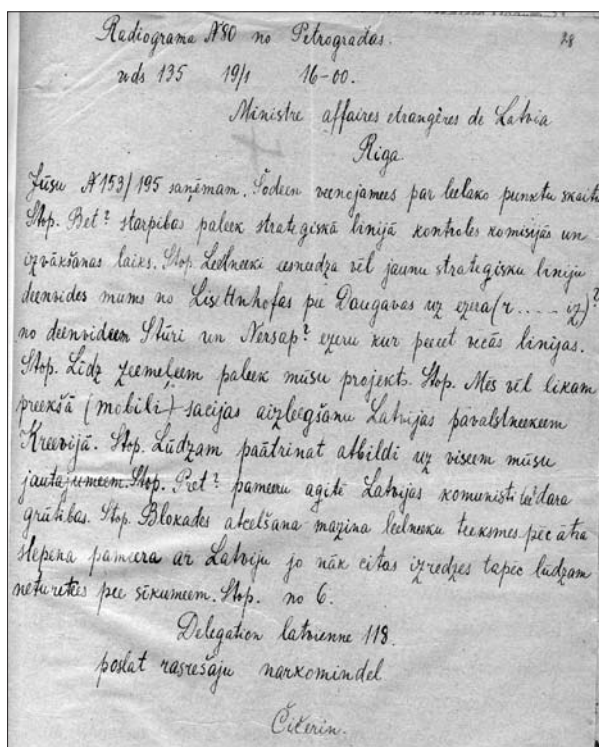 Radiograma №80 no Petrogradas.
28
nds 135 19/1 16-00.
Ministre affaires etrangères de Latvia
Riga
Jūsu №153/195 saņēmam. Šodeen veenojamees par leelako punktu skaitu
Stop. Bet? starpibas paleek strategiskā linijā kontroles komisijās un
izvākšanas laiks. Stop. Leelneeki eesnedza vēl jaunu strategisku liniju
deenvides mums no Lisettnhofas pee Daugavas uz ezera (r.... iz)?
no deenvideem Stūri un Nersap? ezeru kur peeet vecās linijas.
Stop. Līdz zeemeļeem paleek mūsu projekts. Stop. Mēs vēl likam
preekšā (mobili-) sacijas aizleegšanu Latvijas pavalstneekeem
Kreevijā. Stop. Lūdzam paātrinat atbildi uz viseem mūsu
jautajumeem. Stop. Pret? pameeru agitē Latvijas komunisti dara
grūtibas. Stop. Blokades atcelšana mazina leelneeku teeksmes pēc ātra
slepena pameera ar Latviju jo nāk citas izredzes tapēc lūdzam
neturetees pee sīkumeem. Stop. no 6.
Delegation latvienne 118.
poslat rasrešaju narkomindel
Čičerin.